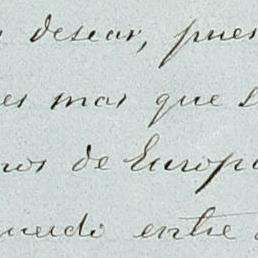 desear, pues
es mas que
de Europa
entre